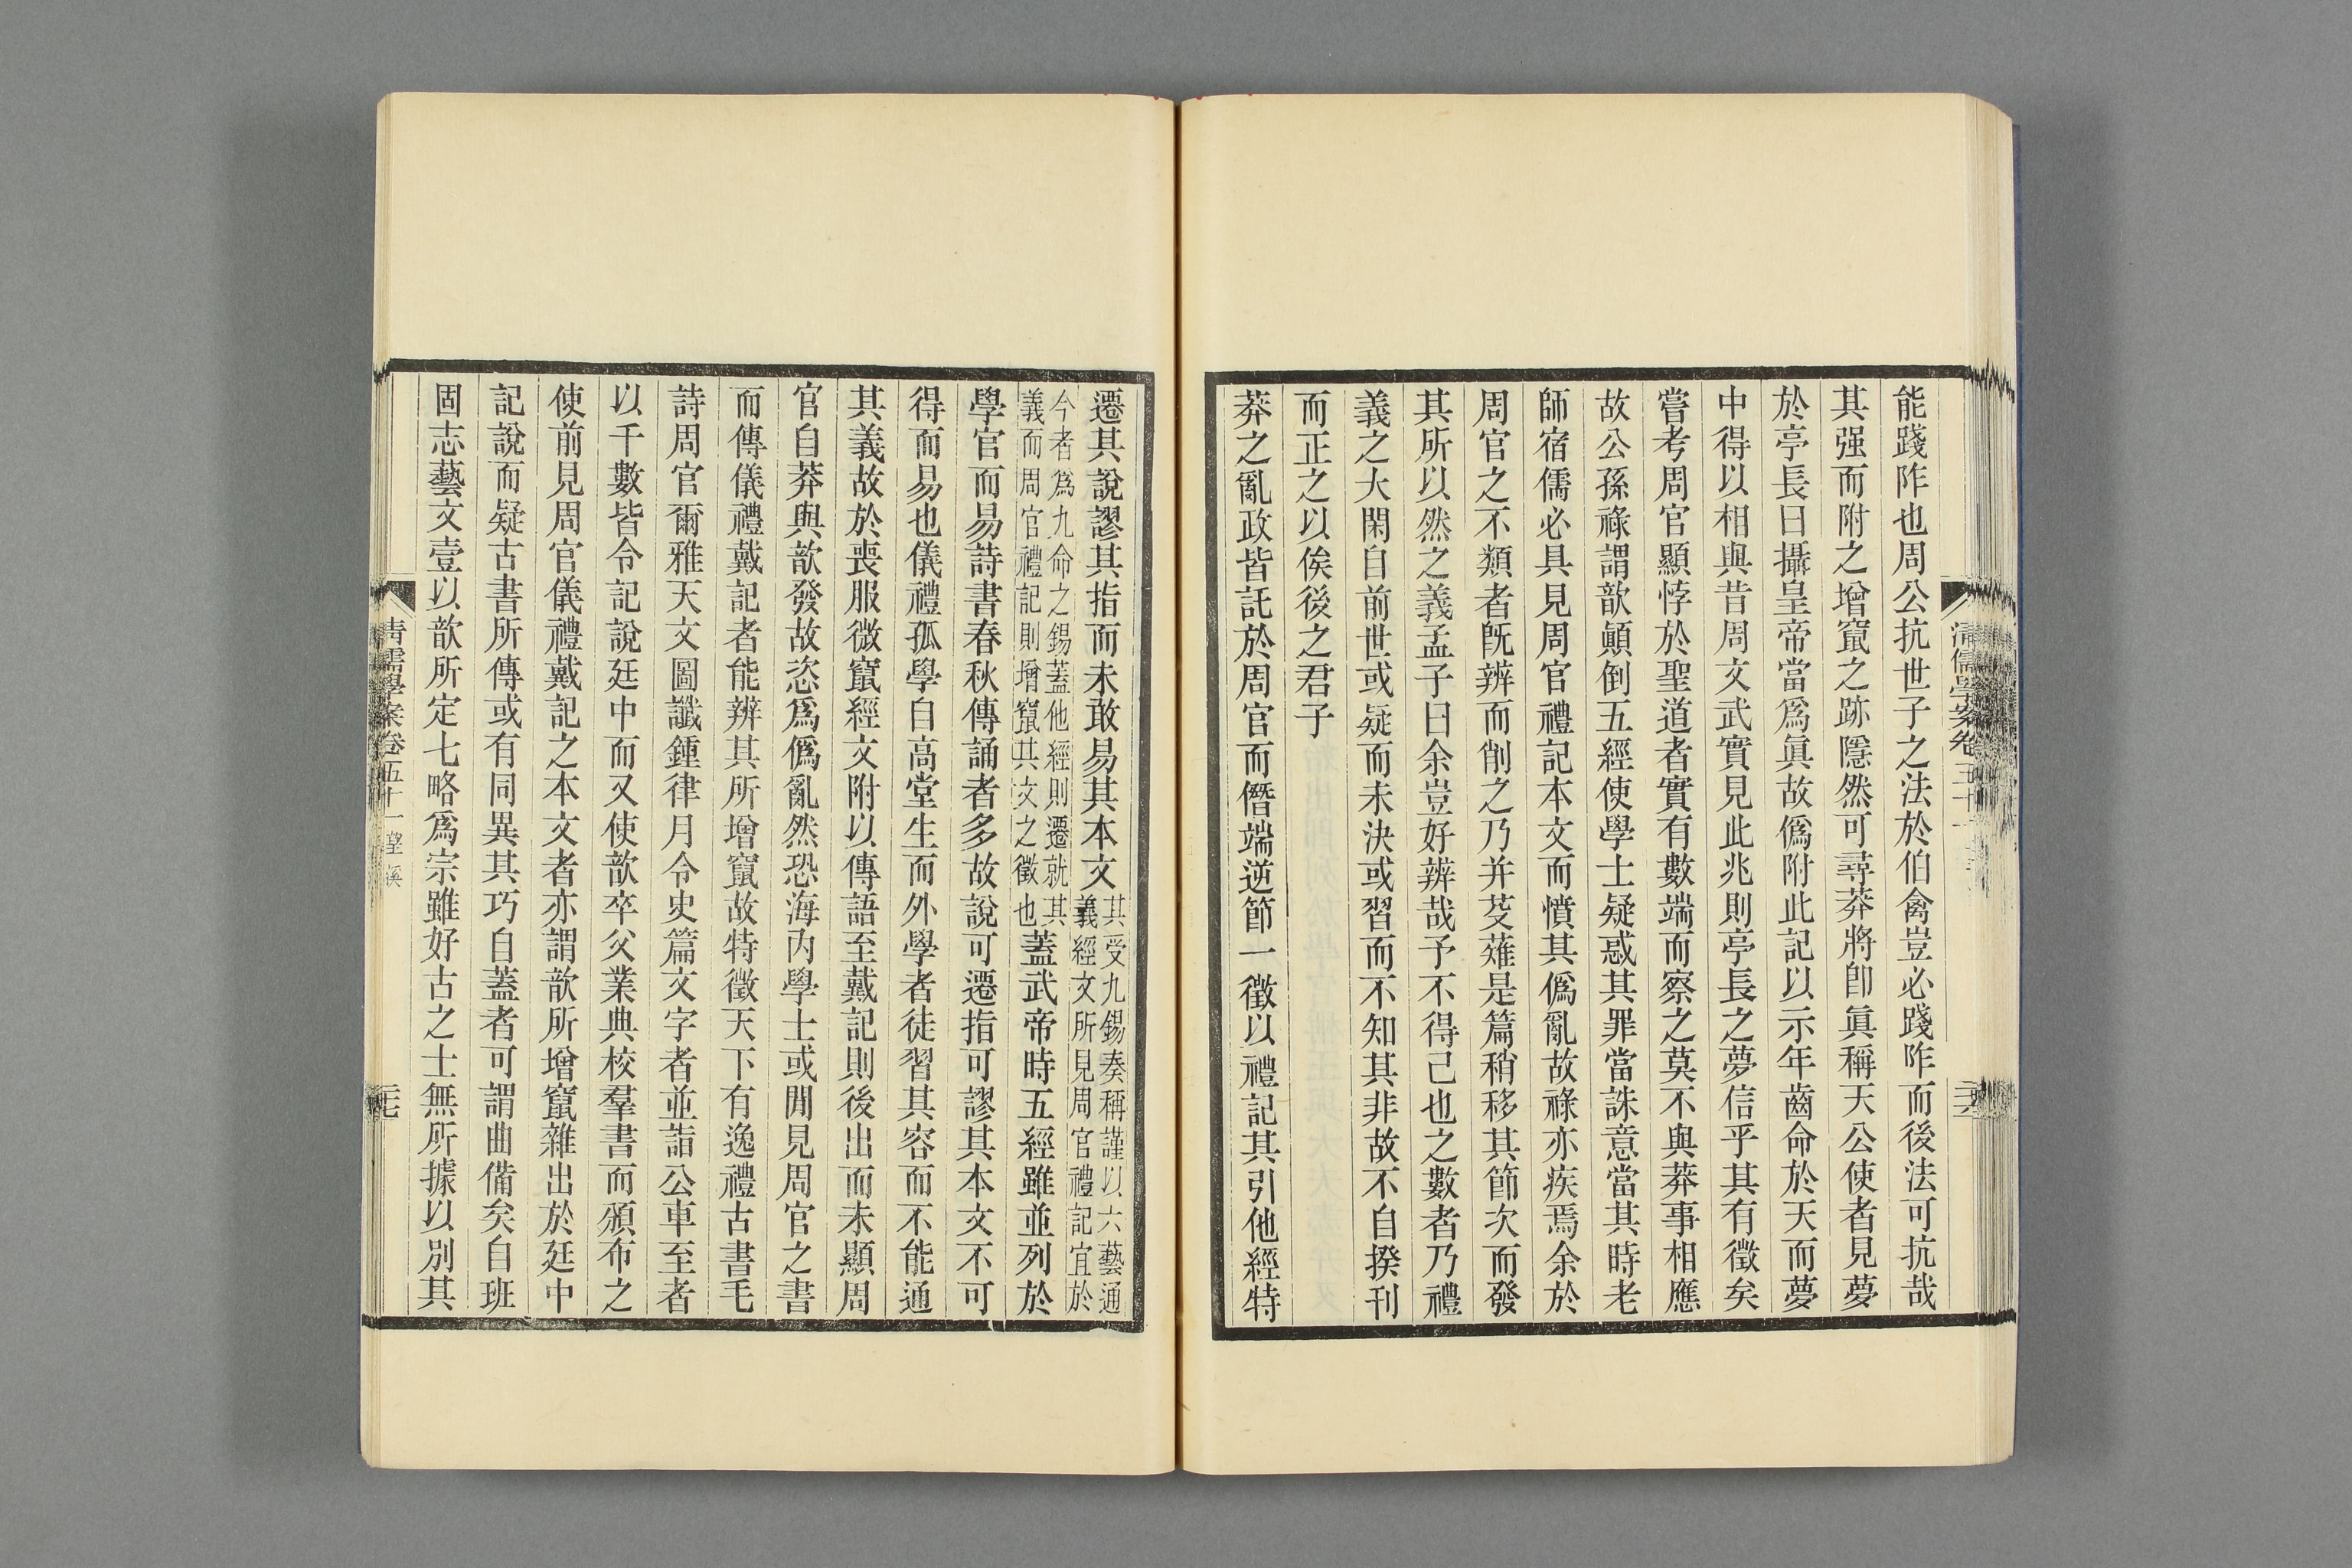 能踐阼也周公抗世子之法於伯禽豈必踐阼而後法可抗哉
其强而附之增竄之跡隱然可尋莽將卽眞稱天公使者見夢
於亭長曰攝皇帝當爲眞故僞附此記以示年齒命於天而夢
中得以相與昔周文武實見此兆則亭長之夢信乎其有徵矣
嘗考周官顯悖於聖道者實有數端而察之莫不與莽事相應
故公孫祿謂歆顚倒五經使學士疑惑其罪當誅意當其時老
師宿儒必具見周官禮記本文而憤其僞亂故祿亦疾焉余於
周官之不類者旣辨而削之乃并芟薙是篇稍移其節次而發
其所以然之義孟子曰余豈好辨哉予不得已也之數者乃禮
義之大閑自前世或疑而未決或習而不知其非故不自揆刊
而正之以俟後之君子
莽之亂政皆託於周官而僭端逆節一徵以禮記其引他經特
遷其說謬其指而未敢易其本文其受九錫奏稱謹以六藝通
義經文所見周官禮記宜於
今者爲九命之錫蓋他經則遷就其
義而周官禮記則增竄其文之徵也蓋武帝時五經雖並列於
學官而易詩書春秋傳誦者多故說可遷指可謬其本文不可
得而易也儀禮孤學自高堂生而外學者徒習其容而不能通
其義故於喪服微竄經文附以傳語至戴記則後出而未顯周
官自莽與歆發故恣爲僞亂然恐海內學士或閒見周官之書
而傳儀禮戴記者能辨其所增竄故特徵天下有逸禮古書毛
詩周官爾雅天文圖讖鍾律月令史篇文字者並詣公車至者
以千數皆令記說廷中而又使歆卒父業典校羣書而頒布之
使前見周官儀禮戴記之本文者亦謂歆所增竄雜出於廷中
記說而疑古書所傳或有同異其巧自蓋者可謂曲備矣自班
固志藝文壹以歆所定七略爲宗雖好古之士無所據以別其
清儒學案卷五十一 望溪